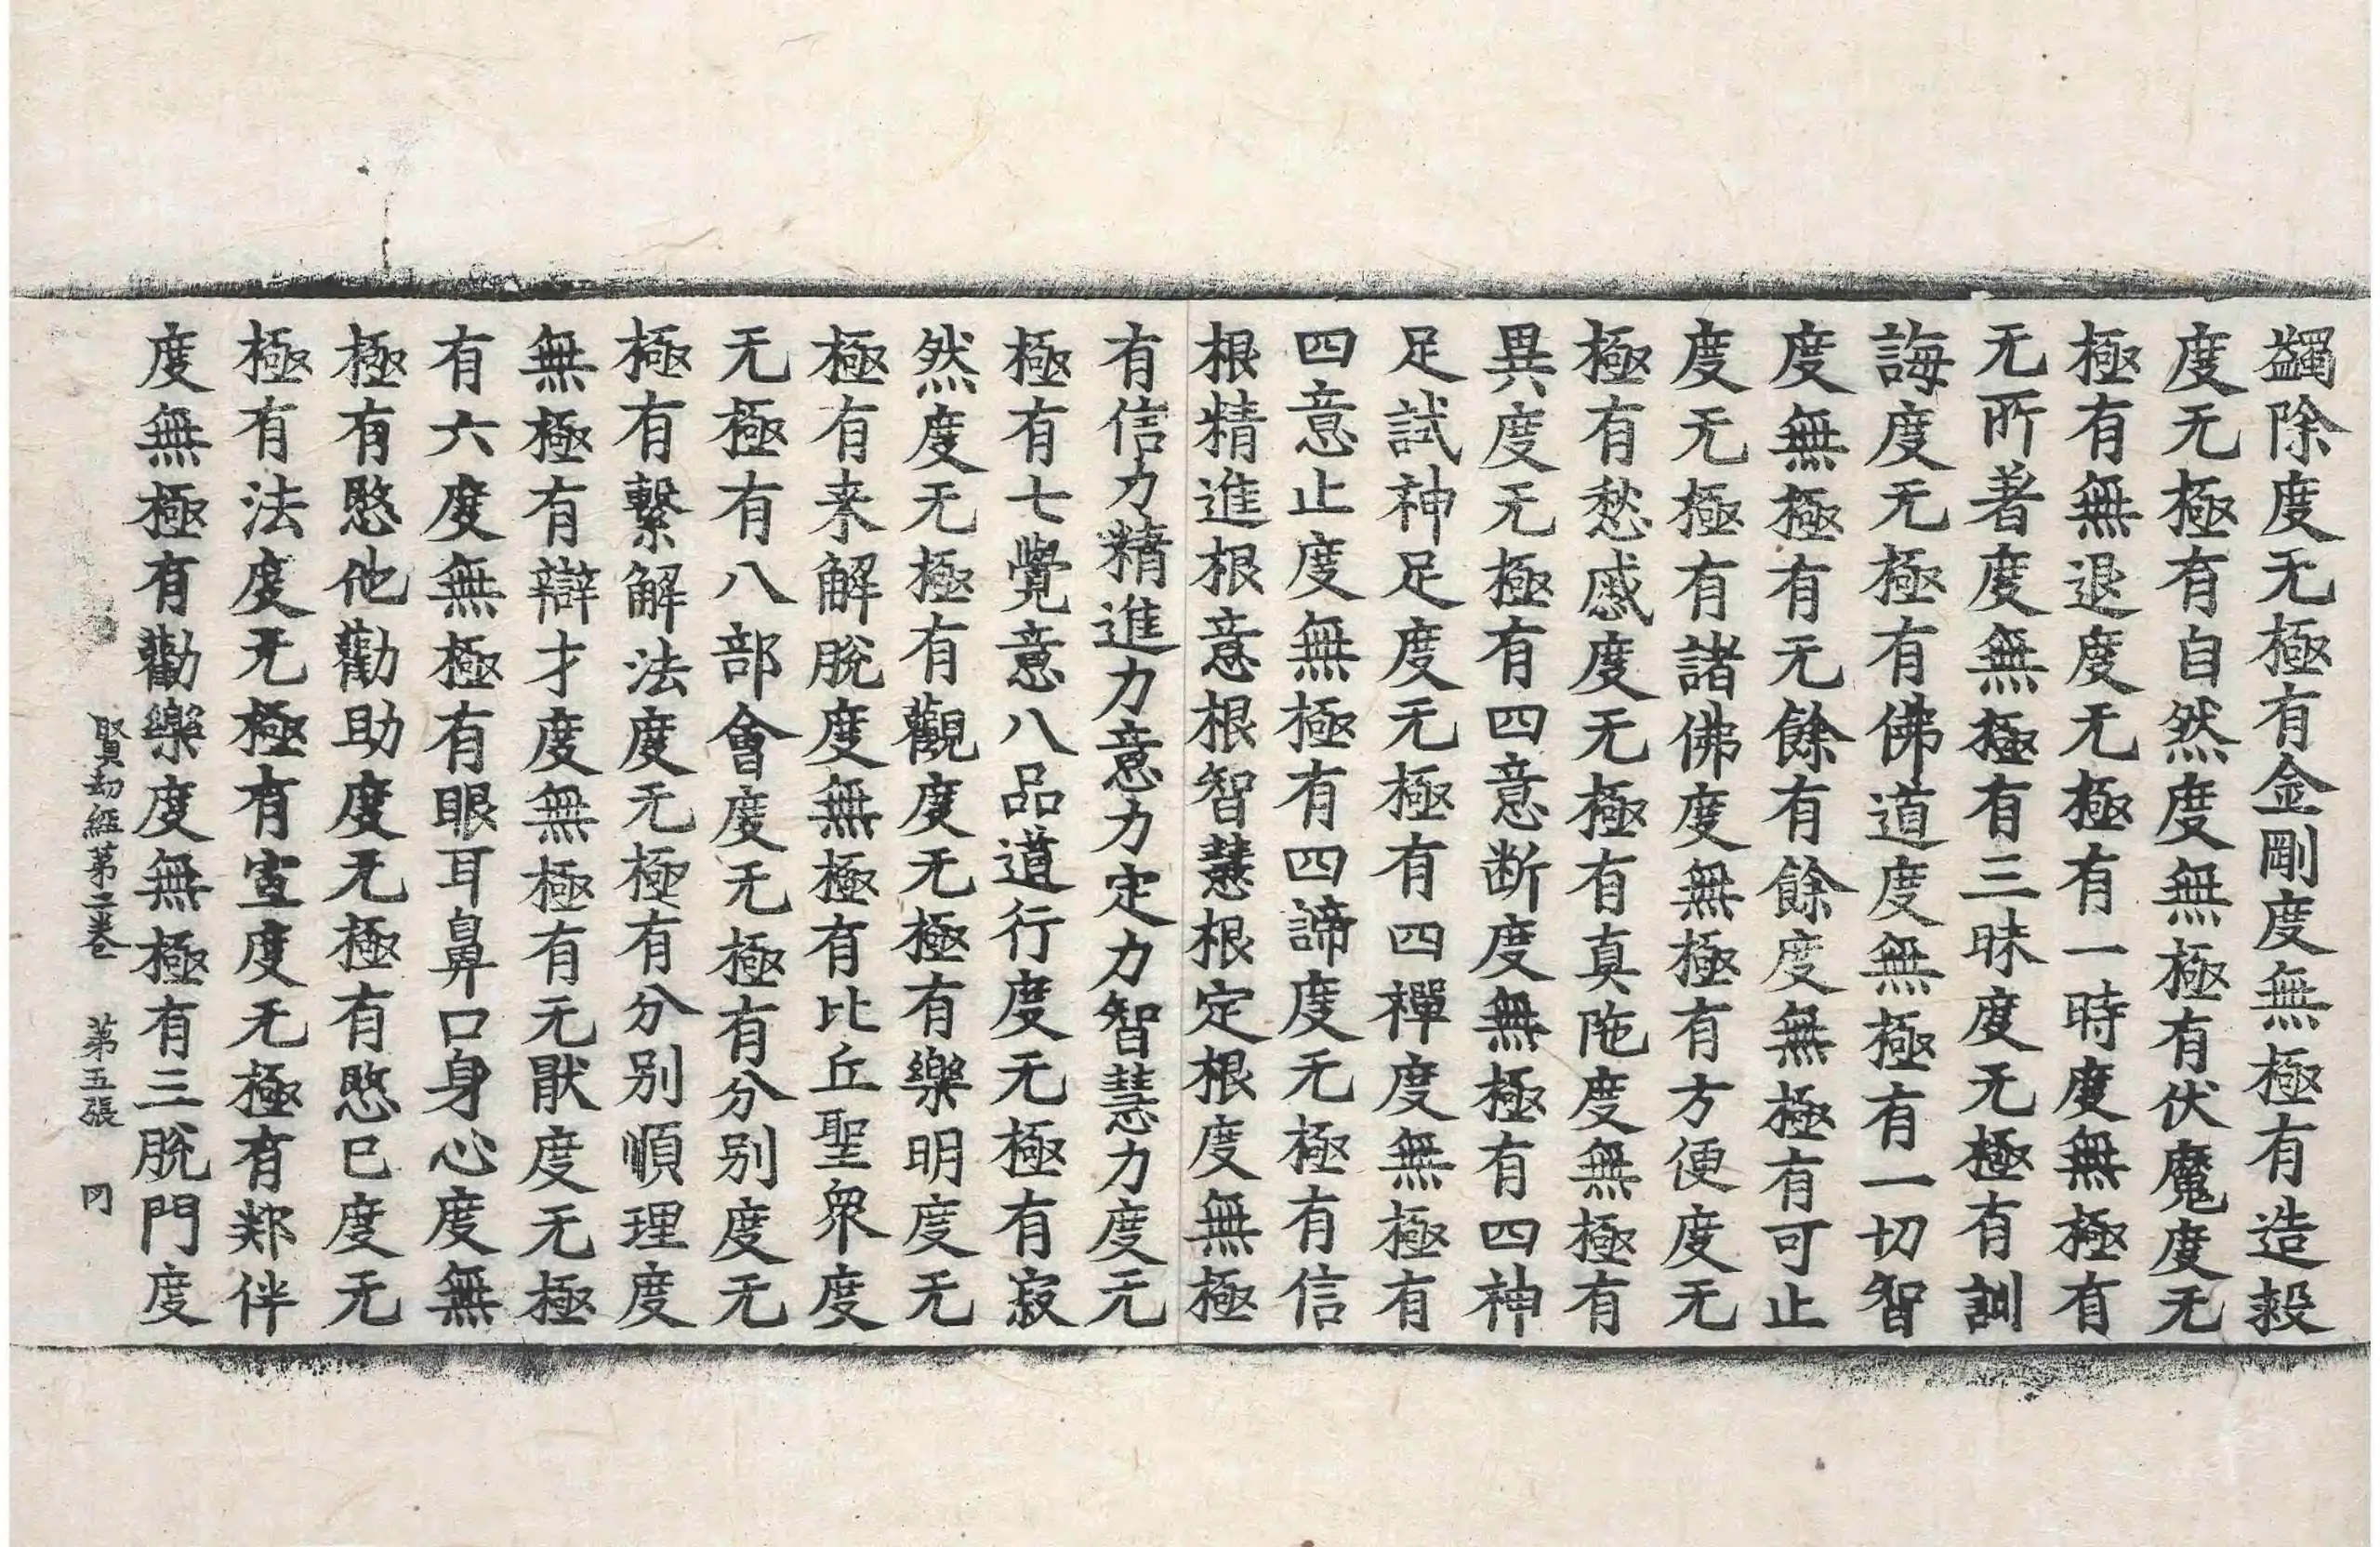 蠲除度无極有金剛度無極有造毅
度无極有自然度無極有伏魔度无
極有無退度无極有一時度無極有
无所著度無極有三昧度无極有訓
誨度无極有佛道度無極有一切智
度無極有无餘有餘度無極有可止
度无極有諸佛度無極有方便度无
極有愁慼度无極有真陁度無極有
異度无極有四意断度無極有四神
足試神足度无極有四禪度無極有
四意止度無極有四諦度无極有信
根精進根意根智慧根定根度無極
有信力精進力意力定力智慧力度无
極有七覺意八品道行度无極有寂
然度无極有觀度无極有樂明度无
極有来解脫度無極有比丘聖衆度
无極有八部會度无極有分别度无
極有繫解法度无極有分别順理度
無極有辯才度無極有无猒度无極
有六度無極有眼耳鼻口身心度無
極有愍他勸助度无極有愍已度无
極有法度无極有宣度无極有鄰伴
度無極有勸樂度無極有三脫門度
賢劫經第二卷 第五張 罔